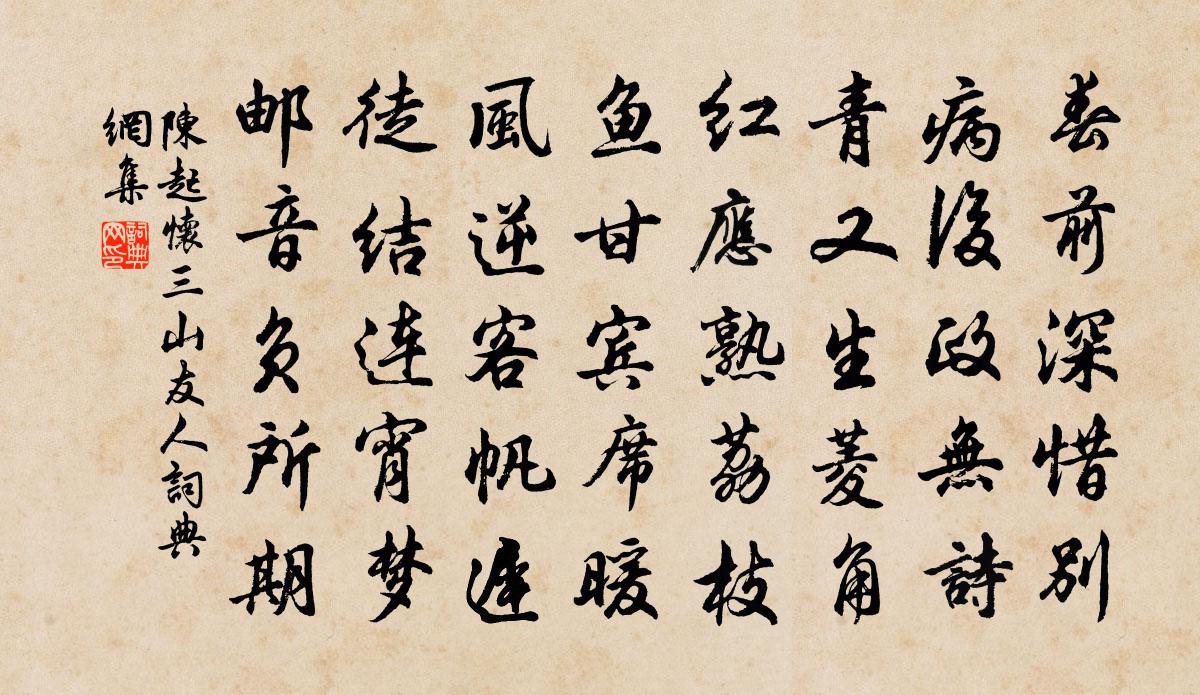 春前深惜别
病後政無詩
青又生菱角
红應熟荔枝
鱼甘宾席暖
風逆客帆遲
徒结连宵梦
邮音负所期
陳起懷三山友人詞典
網集
詞典
网印